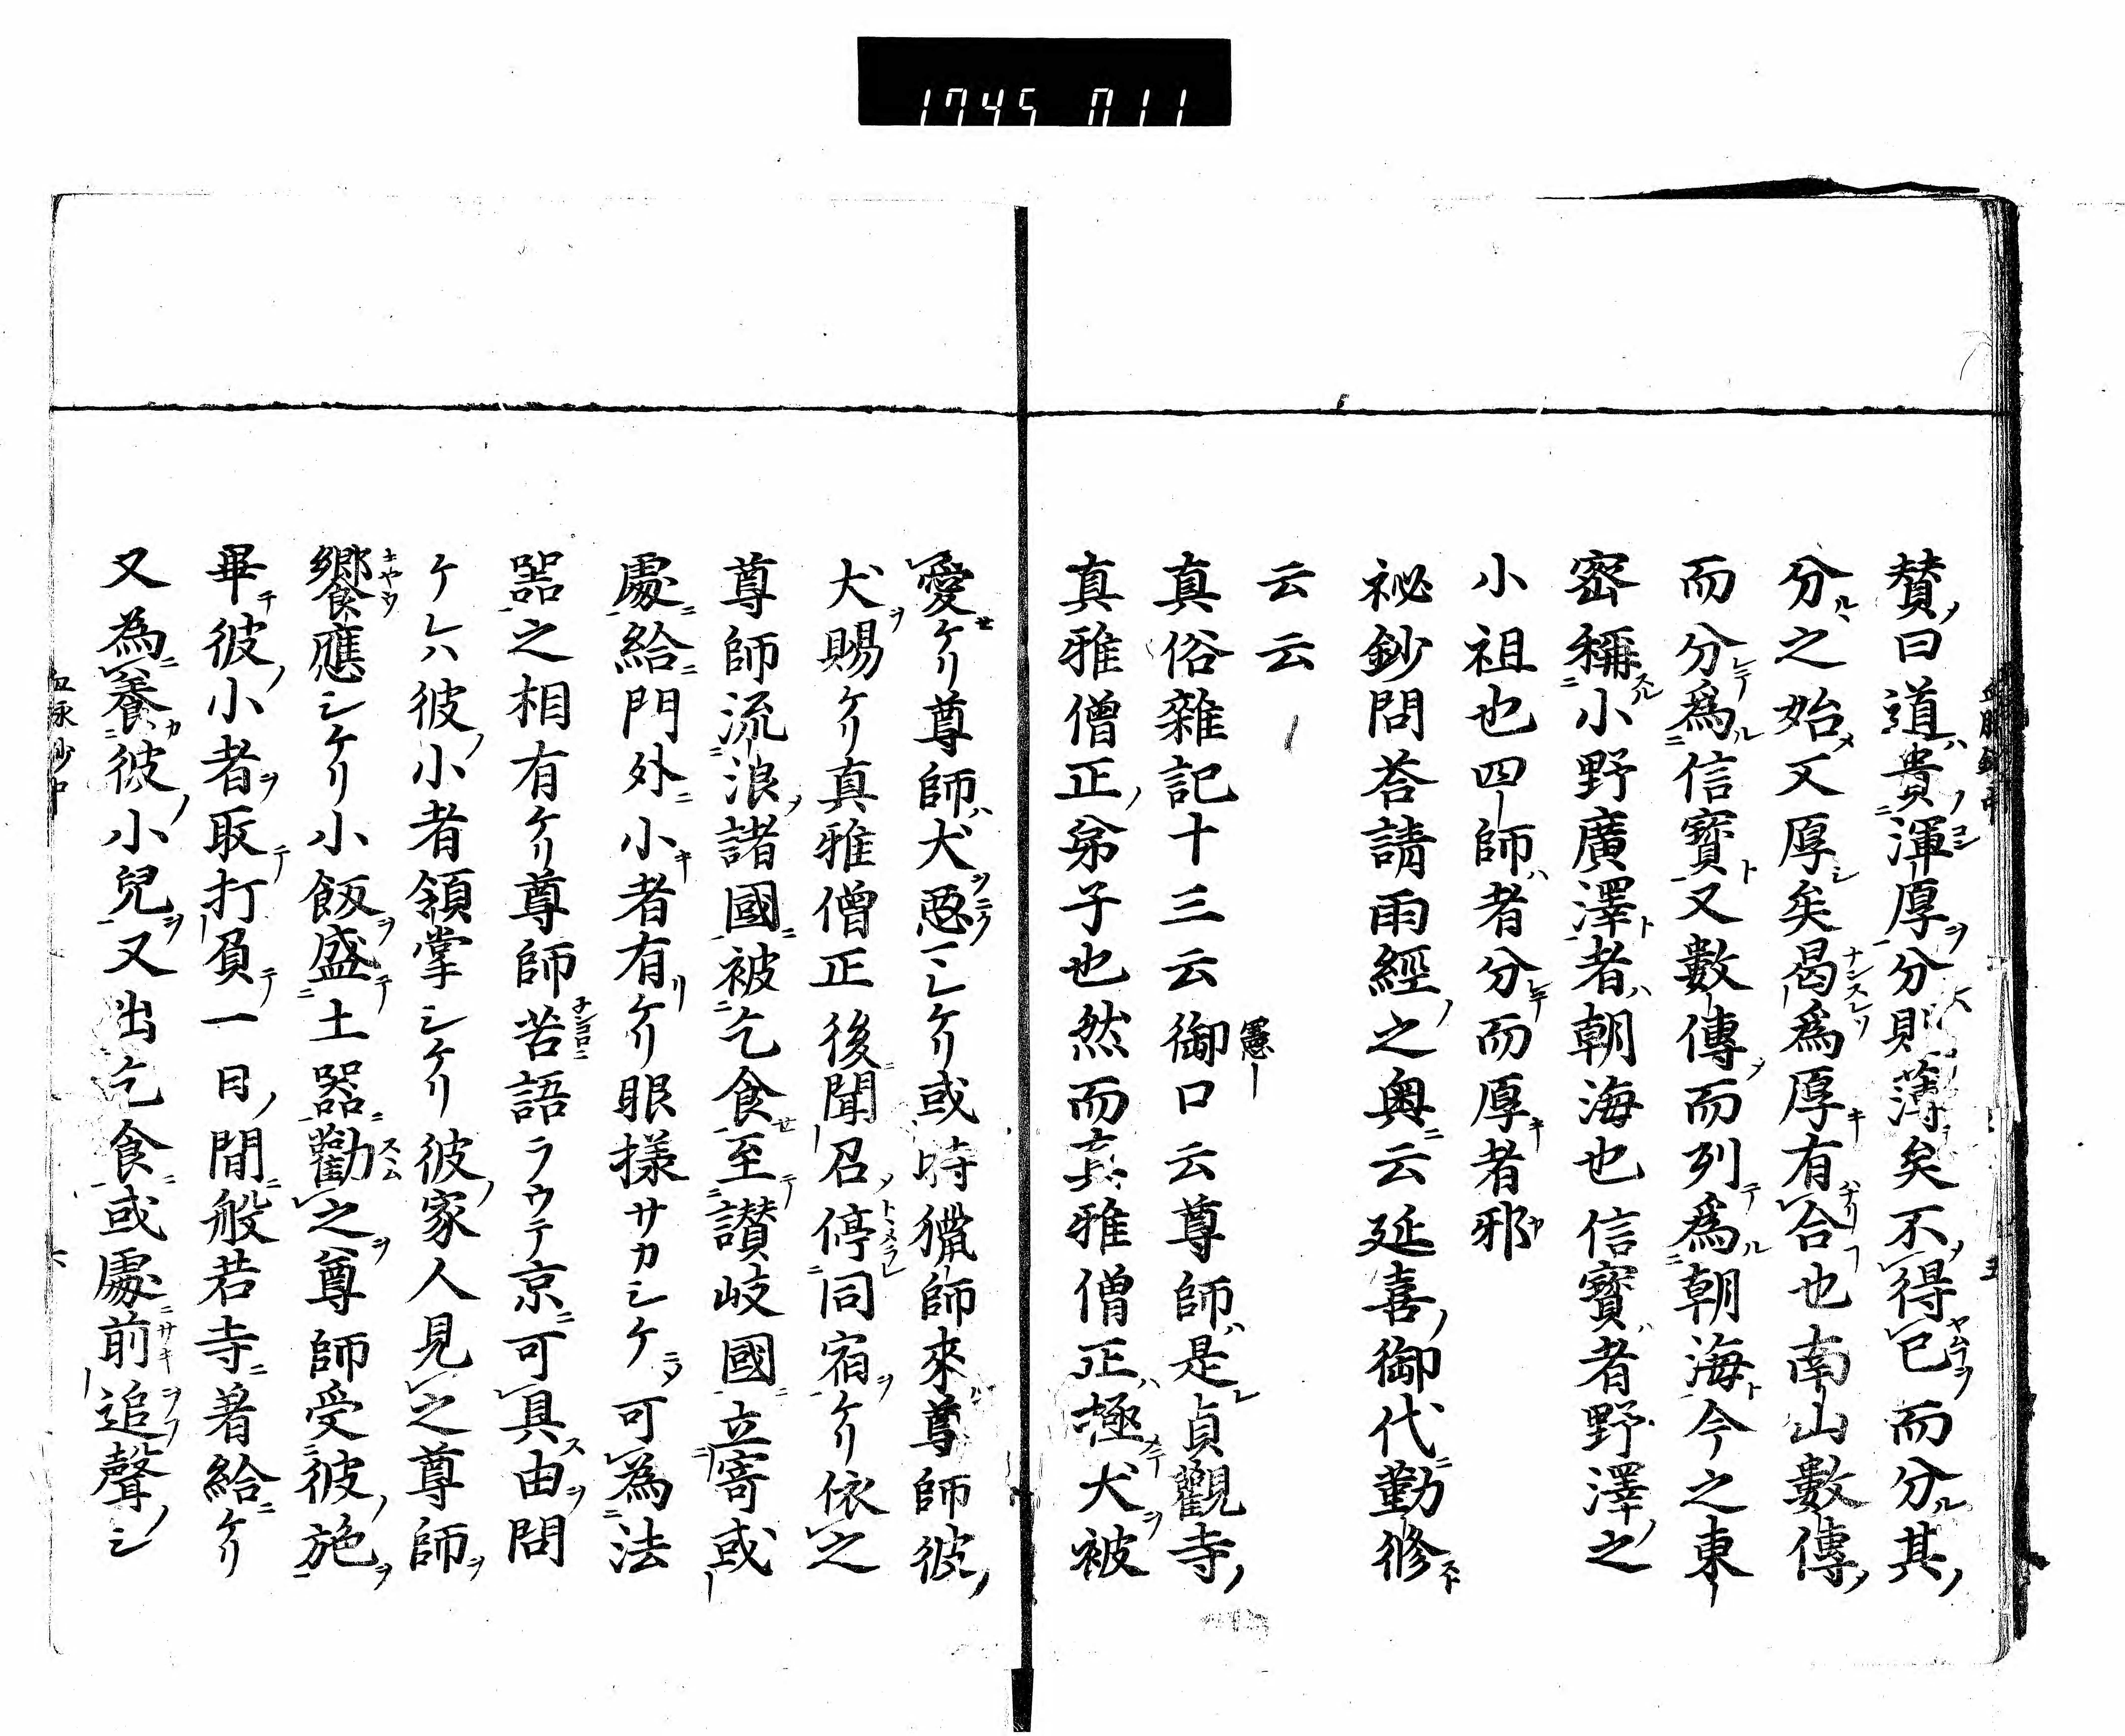 1745 011
賛曰道貴渾厚分則薄矣不得已而分其
分之始又厚矣曷爲厚有合也南山數傳
而分爲信寳又數傳而列爲朝海今之東
密稱小野廣澤者朝海也信寳者野澤之
小祖也四師者分而厚者邪
祕鈔問荅請雨經之奥云延喜御代勤修
云云
真俗雜記十三云御口云尊師是貞觀寺
憲
真雅僧正弟子也然而真雅僧正極犬被
愛ケリ尊師犬惡ミシケリ或時獵師來尊師彼
犬賜ケリ真雅僧正後聞召停同宿ケリ依之
尊師流浪諸國被乞食至讃岐國立寄或
處給門外小者有ケリ眼様サカシケ可為法
器之相有ケリ尊師苦語ラウテ京可具由問
ケレハ彼小者領掌シケリ彼家人見之尊師
饗應シケリ小飯盛土器勸之尊師受彼施
畢彼小者取打負一日間般若寺著給ケリ
又為養彼小兒又出乞食或處前追聲シ
六